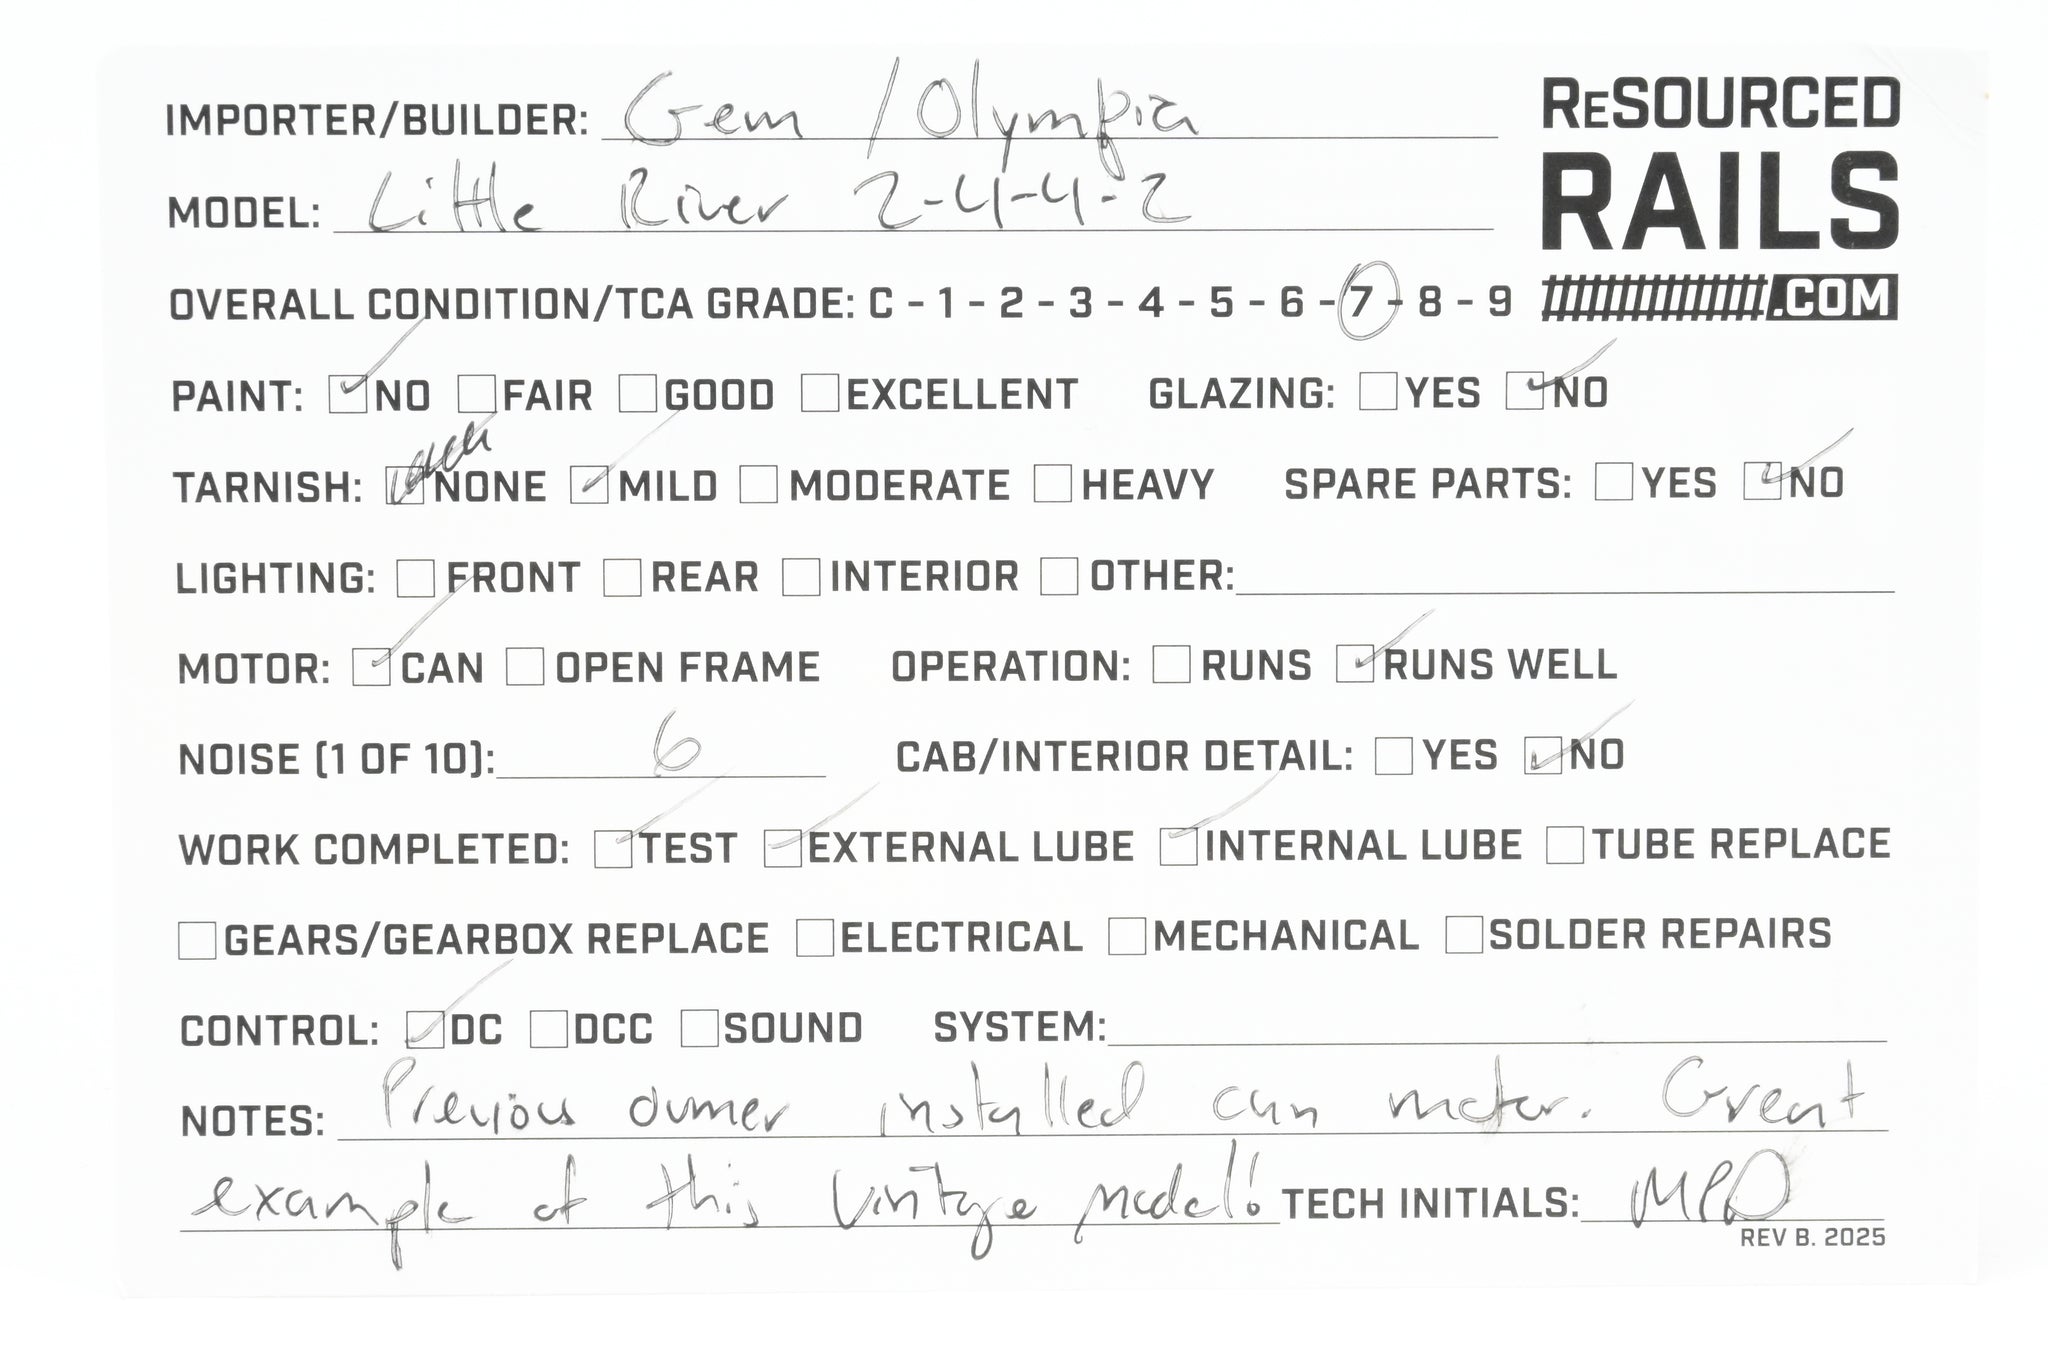 IMPORTER/BUILDER: Gem / Olympia
ReSOURCED
RAILS
.COM
MODEL: Little River 2-4-4-2
OVERALL CONDITION/TCA GRADE: C - 1 - 2 - 3 - 4 - 5 - 6 - 7 - 8 - 9
PAINT: ☑ NO ☐ FAIR ☐ GOOD ☐ EXCELLENT GLAZING: ☐ YES ☑ NO
TARNISH: ☐ NONE ☑ MILD ☐ MODERATE ☐ HEAVY SPARE PARTS: ☐ YES ☑ NO
LIGHTING: ☐ FRONT ☐ REAR ☐ INTERIOR ☐ OTHER:
MOTOR: ☑ CAN ☐ OPEN FRAME OPERATION: ☐ RUNS ☑ RUNS WELL
NOISE (1 OF 10): 6 CAB/INTERIOR DETAIL: ☐ YES ☑ NO
WORK COMPLETED: ☑ TEST ☑ EXTERNAL LUBE ☑ INTERNAL LUBE ☐ TUBE REPLACE
☐ GEARS/GEARBOX REPLACE ☐ ELECTRICAL ☐ MECHANICAL ☐ SOLDER REPAIRS
CONTROL: ☑ DC ☐ DCC ☐ SOUND SYSTEM:
NOTES: Previous owner installed can motor. Great
example of this vintage model! TECH INITIALS: MPD
REV B. 2025